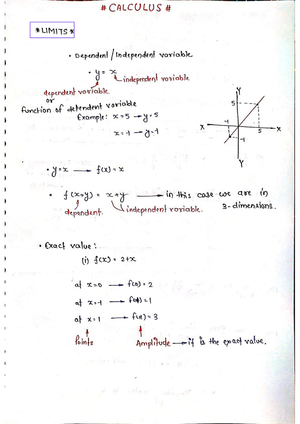 # CALCULUS #
* LIMITS *
• Dependent / Independent variable
• y = x
independent variable
dependent variable
or
function of dependent variable
Example: x = 5 → y = 5
x = -1 → y = -1
Y
5
X
-1
5
X
-1
Y
• y = x → f(x) = x
• f(x,y) = x+y → in this case we are in
3-dimensions.
dependent.
independent variable.
• Exact value :
(i) f(x) = 2+x
at x=0 → f(0) = 2
at x=-1 → f(-1) = 1
at x=1 → f(1) = 3
Points
Amplitude → it is the exact value.